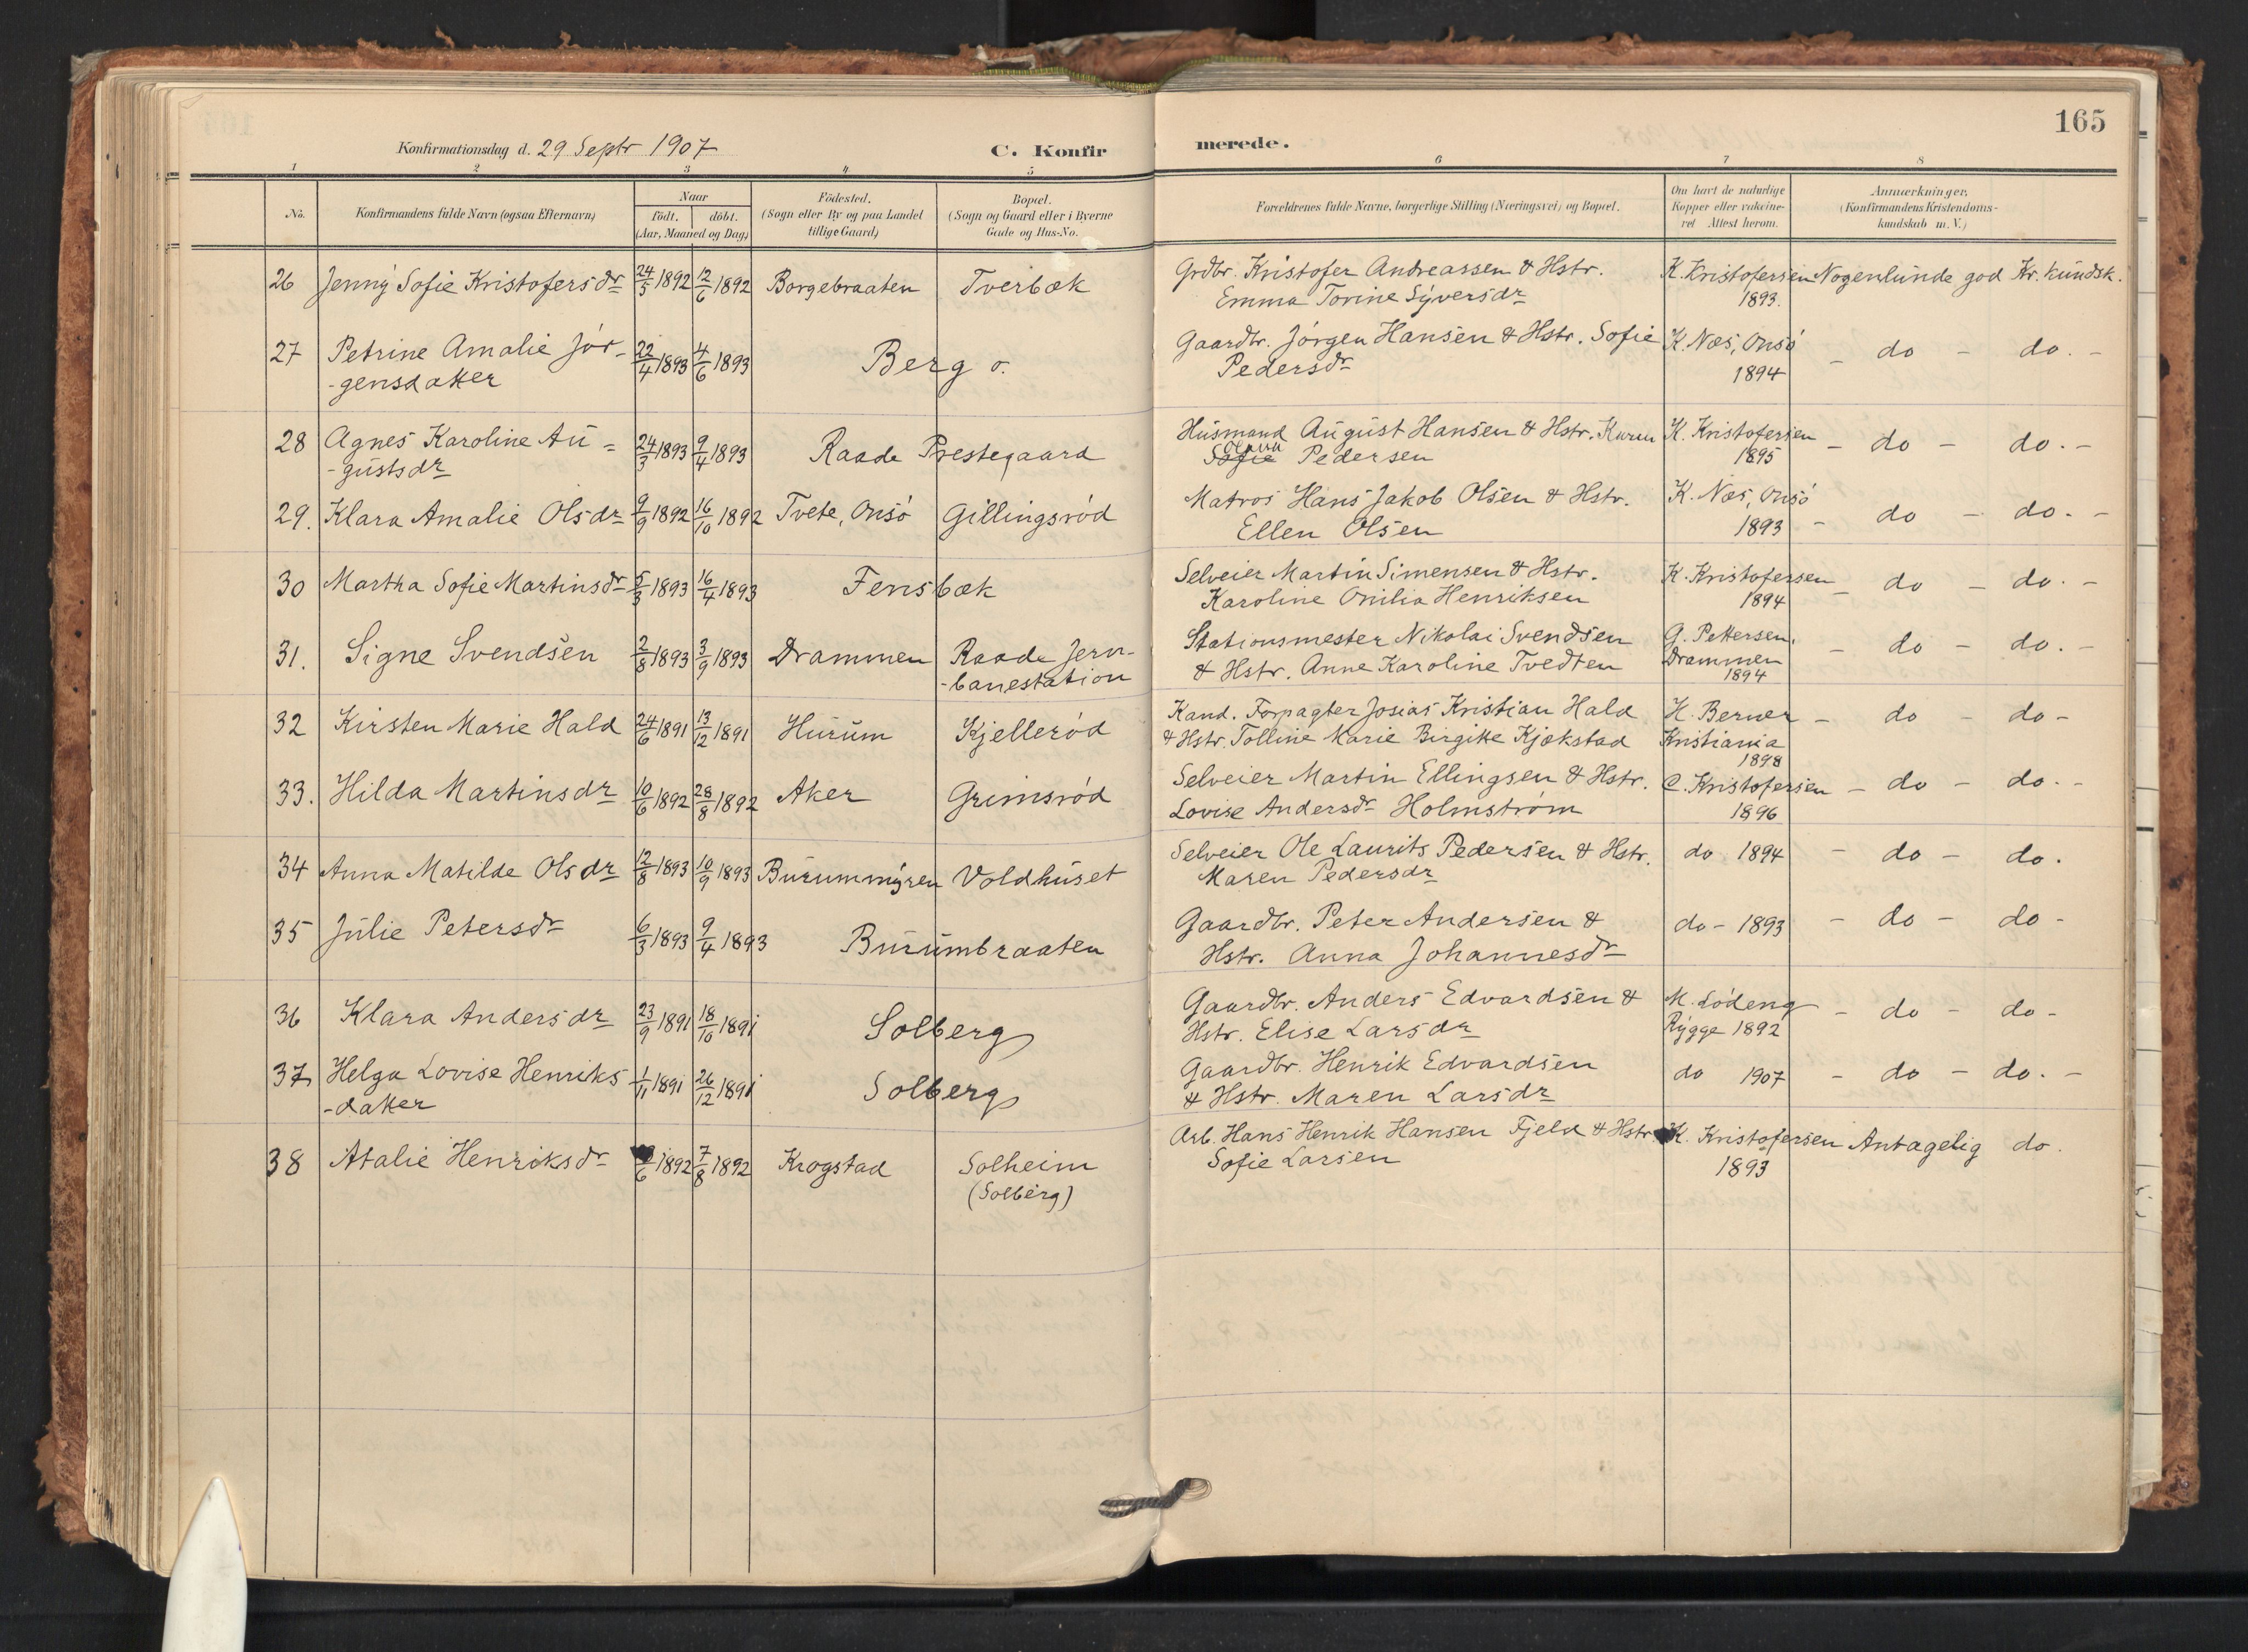 165
Konfirmationsdag d. 29 Septr 1907
C. Konfirmerede.
1 2 3 4 5 6 7 8
No.
Konfirmandens fulde Navn (ogsaa Efternavn)
Naar
født. døbt.
(Aar, Maaned og Dag)
Fødested.
(Sogn eller By og paa Landet
tillige Gaard)
Bopæl.
(Sogn og Gaard eller i Byerne
Gade og Hus-No.
Forældrenes fulde Navne, borgerlige Stilling (Næringsvei) og Bopæl.
Om havt de naturlige
Kopper eller vakcine-
ret Attest herom.
Anmærkninger.
(Konfirmandens Kristendoms-
kundskab m. V.)
26 Jenny Sofie Kristofersdr 24/5 1892 12/6 1892 Borgebraaten Tverbæk Grdbr. Kristofer Andreassen & Hstr. K. Kristofersen Nogenlunde god Kr. kundsk.
Emma Torine Syversdr 1893.
27 Petrine Amalie Jör- 22/4 1893 4/6 1893 Berg o. Gaardbr. Jörgen Hansen & Hstr. Sofie K. Næs, Onsö - do - do. -
-gensdatter Pedersdr 1894
28 Agnes Karoline Au= 24/3 1893 9/4 1893 Raade Prestegaard Husmand August Hansen & Hstr. Karen K. Kristofersen - do - do. -
-gustsdr Sofie Pedersen 1895
29. Klara Amalie Olsdr 9/9 1892 16/10 1892 Tvete, Onsö Gillingsröd Matros Hans Jakob Olsen & Hstr. K. Næs, Onsö - do - do. -
Ellen Olsen 1893
30 Martha Sofie Martinsdr 5/3 1893 16/4 1893 Fensbæk Selveier Martin Simensen & Hstr. K. Kristofersen - do - do. -
Karoline Onilia Henriksen 1894
31. Signe Svendsen 2/8 1893 3/9 1893 Drammen Raade Jern- Stationsmester Nikolai Svendsen G. Pettersen. - do - do. -
-banestation & Hstr. Anne Karoline Tvedten Drammen
1894
32 Kirsten Marie Hald 24/6 1891 13/12 1891 Hurum Kjelleröd Kand. Forpagter Josias Kristian Hald H. Berner - do - do -
& Hstr. Tolline Marie Birgitte Kjøkstad Kristiania
1898
33. Hilda Martinsdr 10/6 1892 28/8 1892 Aker Grimsröd Selveier Martin Ellingsen & Hstr. C. Kristofersen - do - do. -
Lovise Andersdr Holmström 1896
34 Anna Matilde Olsdr 12/8 1893 10/9 1893 Burummyren Voldhuset Selveier Ole Laurits Pedersen & Hstr. do 1894 - do - do.
Maren Pedersdr
35 Julie Petersdr 6/3 1893 9/4 1893 Burumbraaten Gaardbr. Peter Andersen & do - 1893 - do - do -
Hstr. Anna Johannesdr
36 Klara Andersdr 23/9 1891 18/10 1891 Solberg Gaardbr. Anders Edvardsen & M. Lödeng - do - do -
Hstr. Elise Larsdr Rygge 1892
37 Helga Lovise Henriks 1/11 1891 26/12 1891 Solberg Gaardbr. Henrik Edvardsen do 1907 - do - do. -
-datter & Hstr. Maren Larsdr
38 Atalie Henriksdr /6 1892 7/8 1892 Krogstad Solheim Arb. Hans Henrik Hansen Fjeld & Hstr. K. Kristofersen Antagelig do.
(Solberg) Sofie Larsen 1893